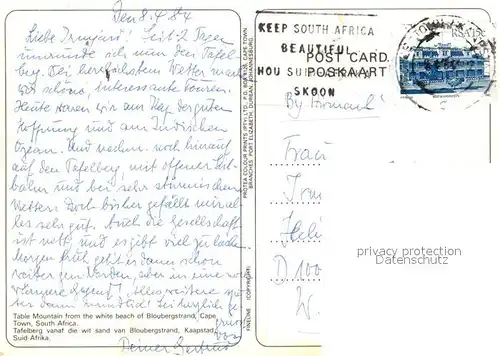 Den 8.4.84
Liebe Irmgard! Seit 2 Tagen
umrunde ich nun den Tafel-
berg. Bei herrlichstem Wetter
wir schöne, interessante Touren.
Heute waren wir am Kap der guten
Hoffnung und am Indischen
Ozean. Und nachm. noch hinauf
auf den Tafelberg, mit offener Seil-
bahn und bei sehr stürmischem
Wetter. Doch bisher gefällt mir
alles sehr gut. Auch die Gesellschaft
ist nett, und es gibt viel zu lachen.
Morgen früh geht es dann schon
weiter gen Norden, aber in eine noch
wärmere Gegend. Alles weitere später
dann mündlich! Sei herzlich gegrüßt
von
Deiner Gertrud
Table Mountain from the white beach of Bloubergstrand, Cape
Town, South Africa.
Tafelberg vanaf die wit sand van Bloubergstrand, Kaapstad,
Suid-Afrika.
PROTEA COLOUR PRINTS (PTY) LTD. P.O. BOX CAPE TOWN
BRANCHES: PORT ELIZABETH, DURBAN, JOHANNESBURG
FINELINE (COPYRIGHT)
KEEP SOUTH AFRICA
BEAUTIFUL
HOU SUID-AFRIKA
SKOON
POST CARD
POSKAART
RSA 15c
By Airmail
Frau
Helu
D 100
W.
privacy protection